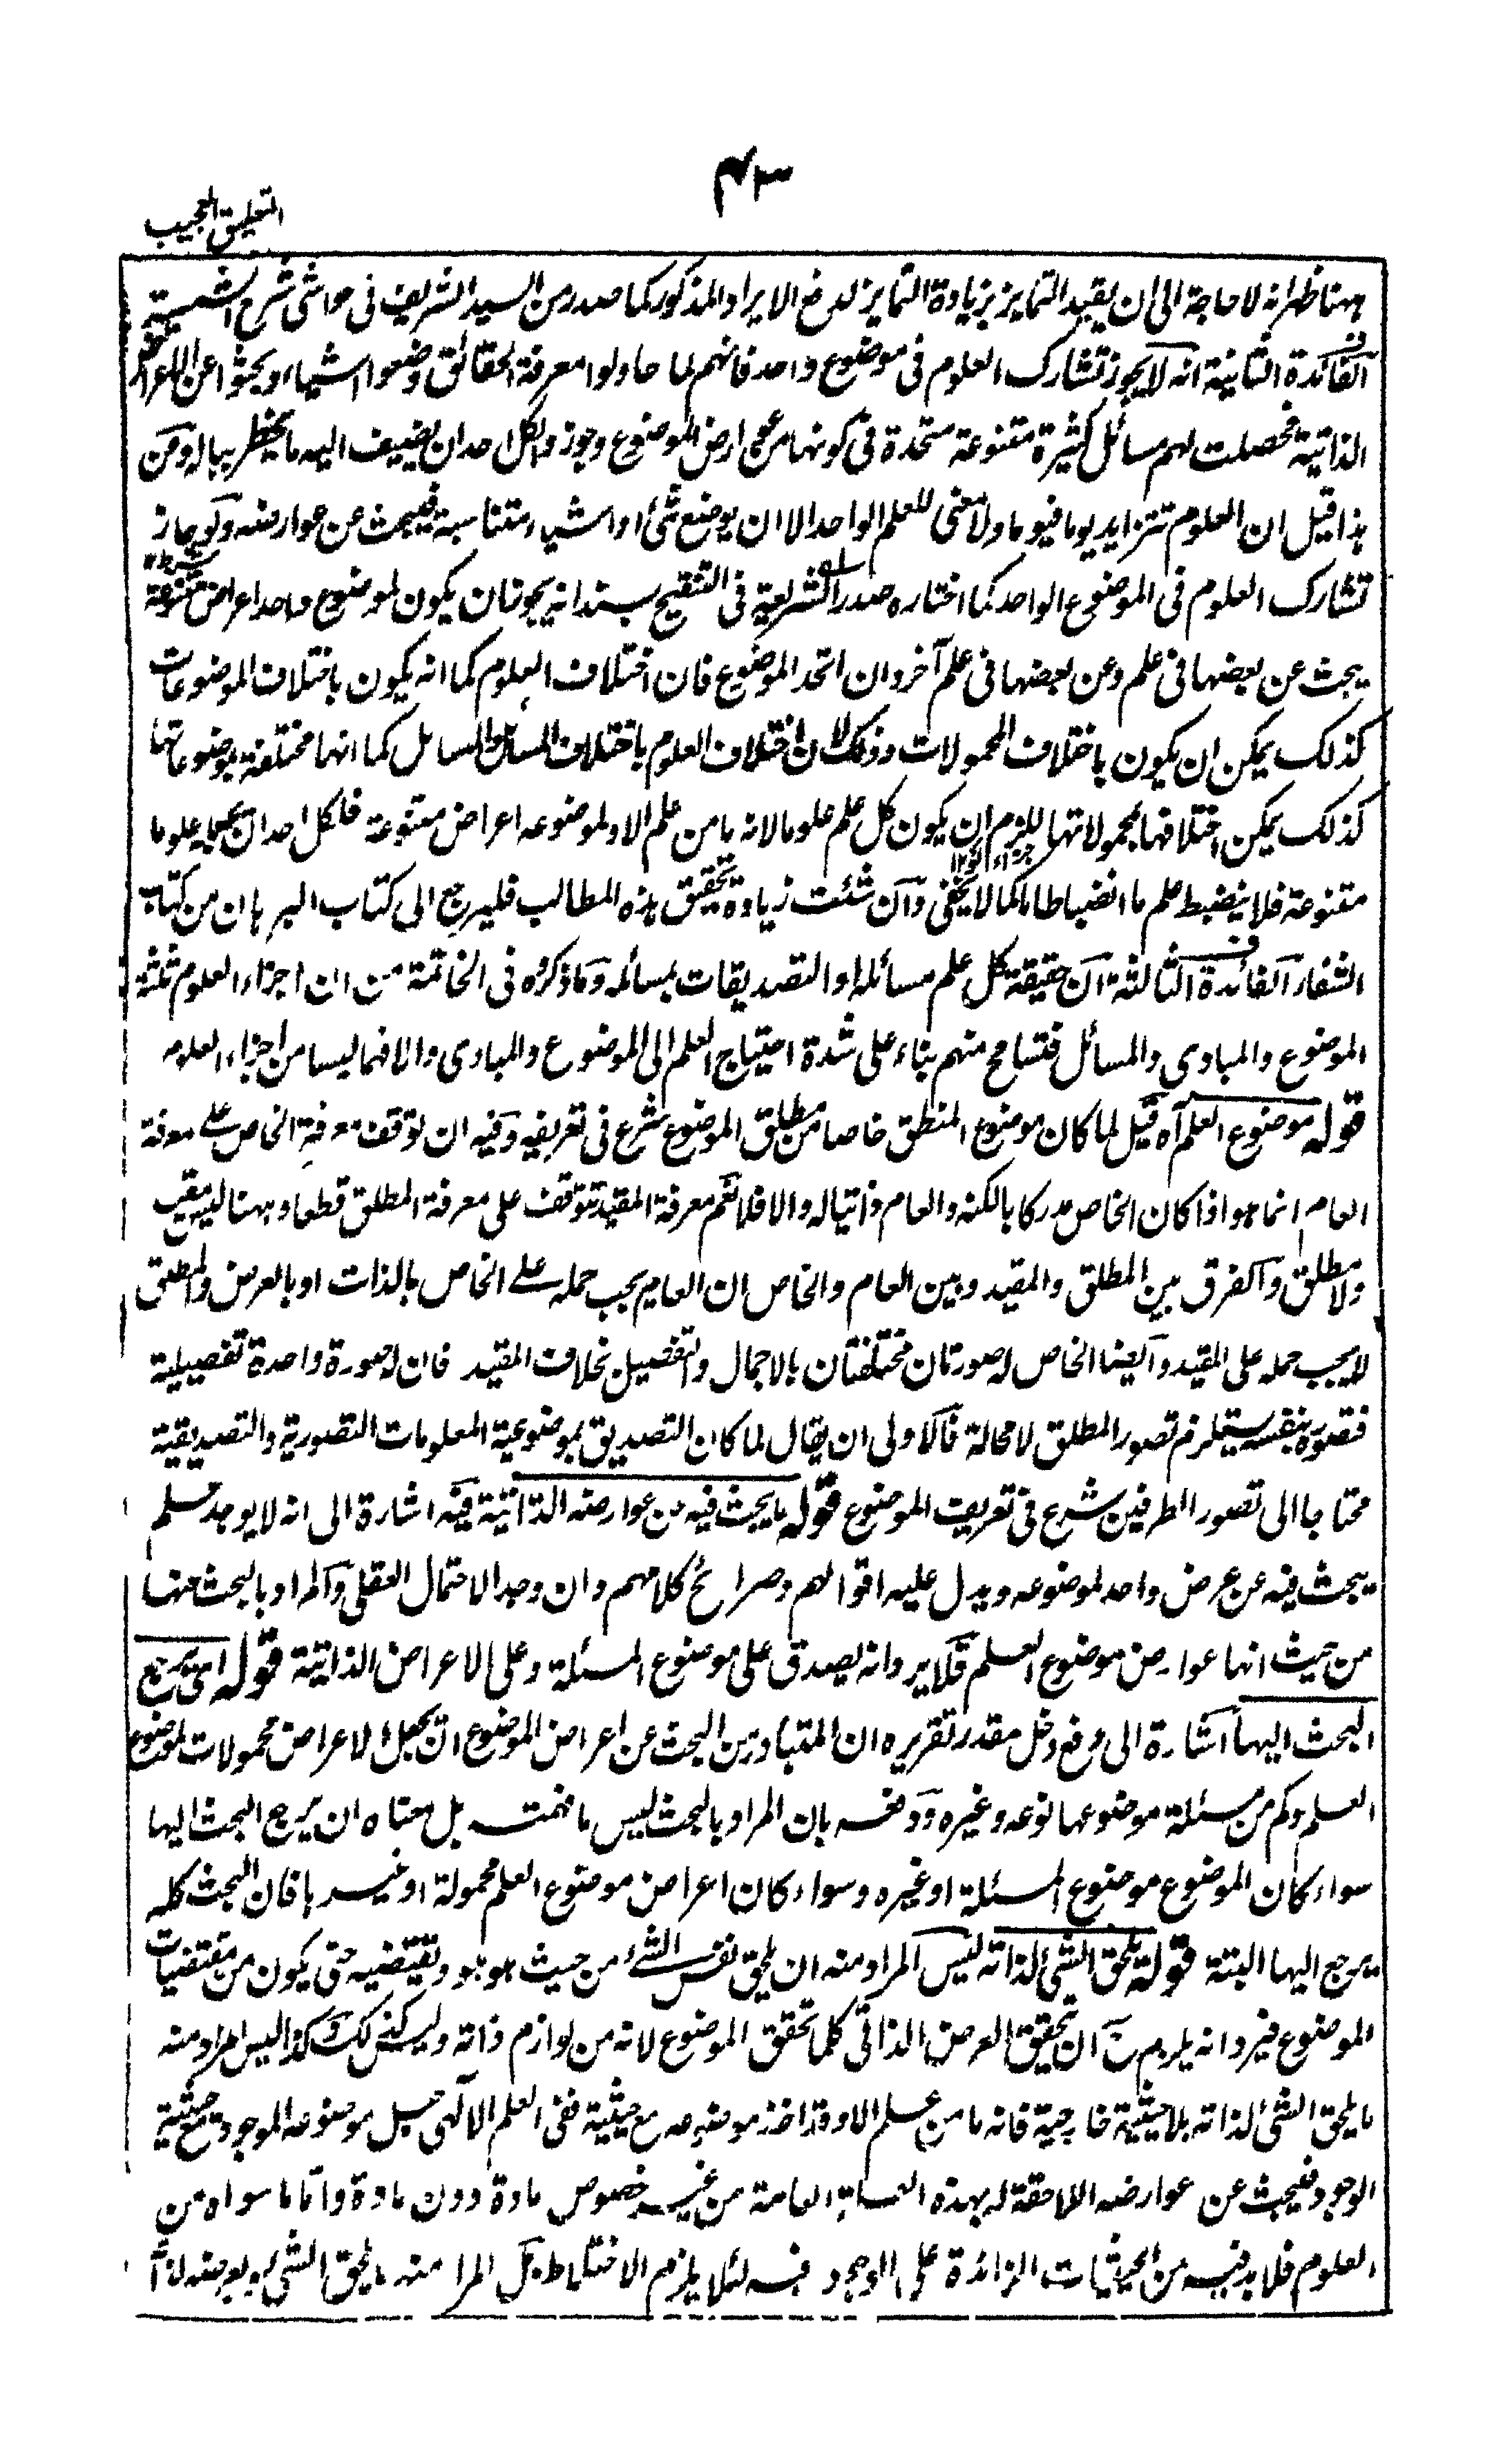 ٤٣
التعليق العجيب
ههنا ظهر انه لا حاجة الى ان يقيد التمايز بزيادة التمايز لدفع الايراد المذكور كما صدر من السيد الشريف فى حواشى شرح الشمسية
الفائدة الثانية انه لا يجوز تشارك العلوم فى موضوع واحد فانهم لما حاولوا معرفة الحقائق وضعوا اشياء وبحثوا عن اعراضها
الذاتية فحصلت لهم مسائل كثيرة متنوعة متحدة فى كونها من عوارض الموضوع وجوز ولكل احد ان يضيف اليه ما يخطر بباله ومن
هذا قيل ان العلوم تتزايد يوما فيوما ولا معنى للعلم الواحد الا ان يوضع شئ او اشياء متناسبة فيبحث عن عوارضه ولو جاز
تشارك العلوم فى الموضوع الواحد كما اختاره صدر الشريعة فى التنقيح بسند انه يجوز ان يكون لموضوع واحد اعراض متنوعة
يبحث عن بعضها فى علم وعن بعضها فى علم آخر وان اتحد الموضوع فان اختلاف العلوم كما انه يكون باختلاف الموضوعات
كذلك يمكن ان يكون باختلاف المحمولات وذلك لان اختلاف العلوم باختلاف المسائل والمسائل كما انها مختلفة بموضوعاتها
كذلك يمكن اختلافها بمحمولاتها للزم ان يكون كل علم علوما لانه ما من علم الا ولموضوعه اعراض متنوعة فلكل احد ان يجعله علوما
متنوعة فلا ينضبط علم ما انضباطا ما كما لا يخفى وآن شئت زيادة تحقيق هذه المطالب فليرجع الى كتاب البرهان من كتاب
الشفاء الفائدة الثالثة ان حقيقة كل علم مسائله او التصديقات بمسائله وما ذكره فى الخاتمة من ان اجزاء العلوم ثلثة
الموضوع والمبادى والمسائل فتسامح منهم بناء على شدة احتياج العلم الى الموضوع والمبادى والا فهما ليسا من اجزاء العلوم
قوله موضوع العلم آه قيل لما كان موضوع المنطق خاصا من مطلق الموضوع شرع فى تعريفه وفيه ان توقف معرفة الخاص على معرفة
العام انما هو اذا كان الخاص مدركا بالكنه والعام ذاتيا له والا فلا نعم معرفة المقيد تتوقف على معرفة المطلق قطعا وههنا ليس مقيد
ولا مطلق والفرق بين المطلق والمقيد وبين العام والخاص ان العام يجب حمله على الخاص بالذات او بالعرض والمطلق
لا يجب حمله على المقيد وايضا الخاص له صورتان مختلفتان بالاجمال والتفصيل بخلاف المقيد فان له صورة واحدة تفصيلية
فتصوره بنفسه يستلزم تصور المطلق لا محالة فالاولى ان يقال لما كان التصديق بموضوعية المعلومات التصورية والتصديقية
محتاجا الى تصور الطرفين شرع فى تعريف الموضوع قوله ما يبحث فيه عن عوارضه الذاتية فيه اشارة الى انه لا يوجد علم
يبحث فيه عن عرض واحد لموضوعه ويدل عليه اقوالهم وصرائح كلامهم وان وجد الاحتمال العقلى والمراد بالبحث عنها
من حيث انها عوارض موضوع العلم فلا يرد انه يصدق على موضوع المسئلة وعلى الاعراض الذاتية قوله اى يرجع
البحث اليها اشارة الى دفع دخل مقدر تقريره ان المتبادر من البحث عن اعراض الموضوع ان يجعل الاعراض محمولات لموضوع
العلم وكم من مسئلة موضوعها نوعه وغيره ودفعه بان المراد بالبحث ليس ما فهمت بل معناه ان يرجع البحث اليها
سواء كان الموضوع موضوع المسئلة او غيره وسواء كان اعراض موضوع العلم محمولة او غيرها فان البحث كله
يرجع اليها البتة قوله يلحق الشئ لذاته ليس المراد منه ان يلحق نفس الشئ من حيث هو هو ويقتضيه حتى يكون من مقتضيات
الموضوع فيرد انه يلزم ح ان يتحقق العرض الذاتى كلما تحقق الموضوع لانه من لوازم ذاته وليس كذلك وكذا ليس المراد منه
ما يلحق الشئ لذاته بلا حيثية خارجية فانه ما من علم الا وقد اخذ موضوعه مع حيثية ففى العلم الالهى جعل موضوعه الموجود مع حيثية
الوجود فيبحث عن عوارضه اللاحقة له بهذه العامة من غير خصوص مادة دون مادة واما ما سواه من
العلوم فلا بد فيه من الحيثيات الزائدة على الوجود فيه لئلا يلزم الاختلاط بل المراد منه ما يلحق الشئ